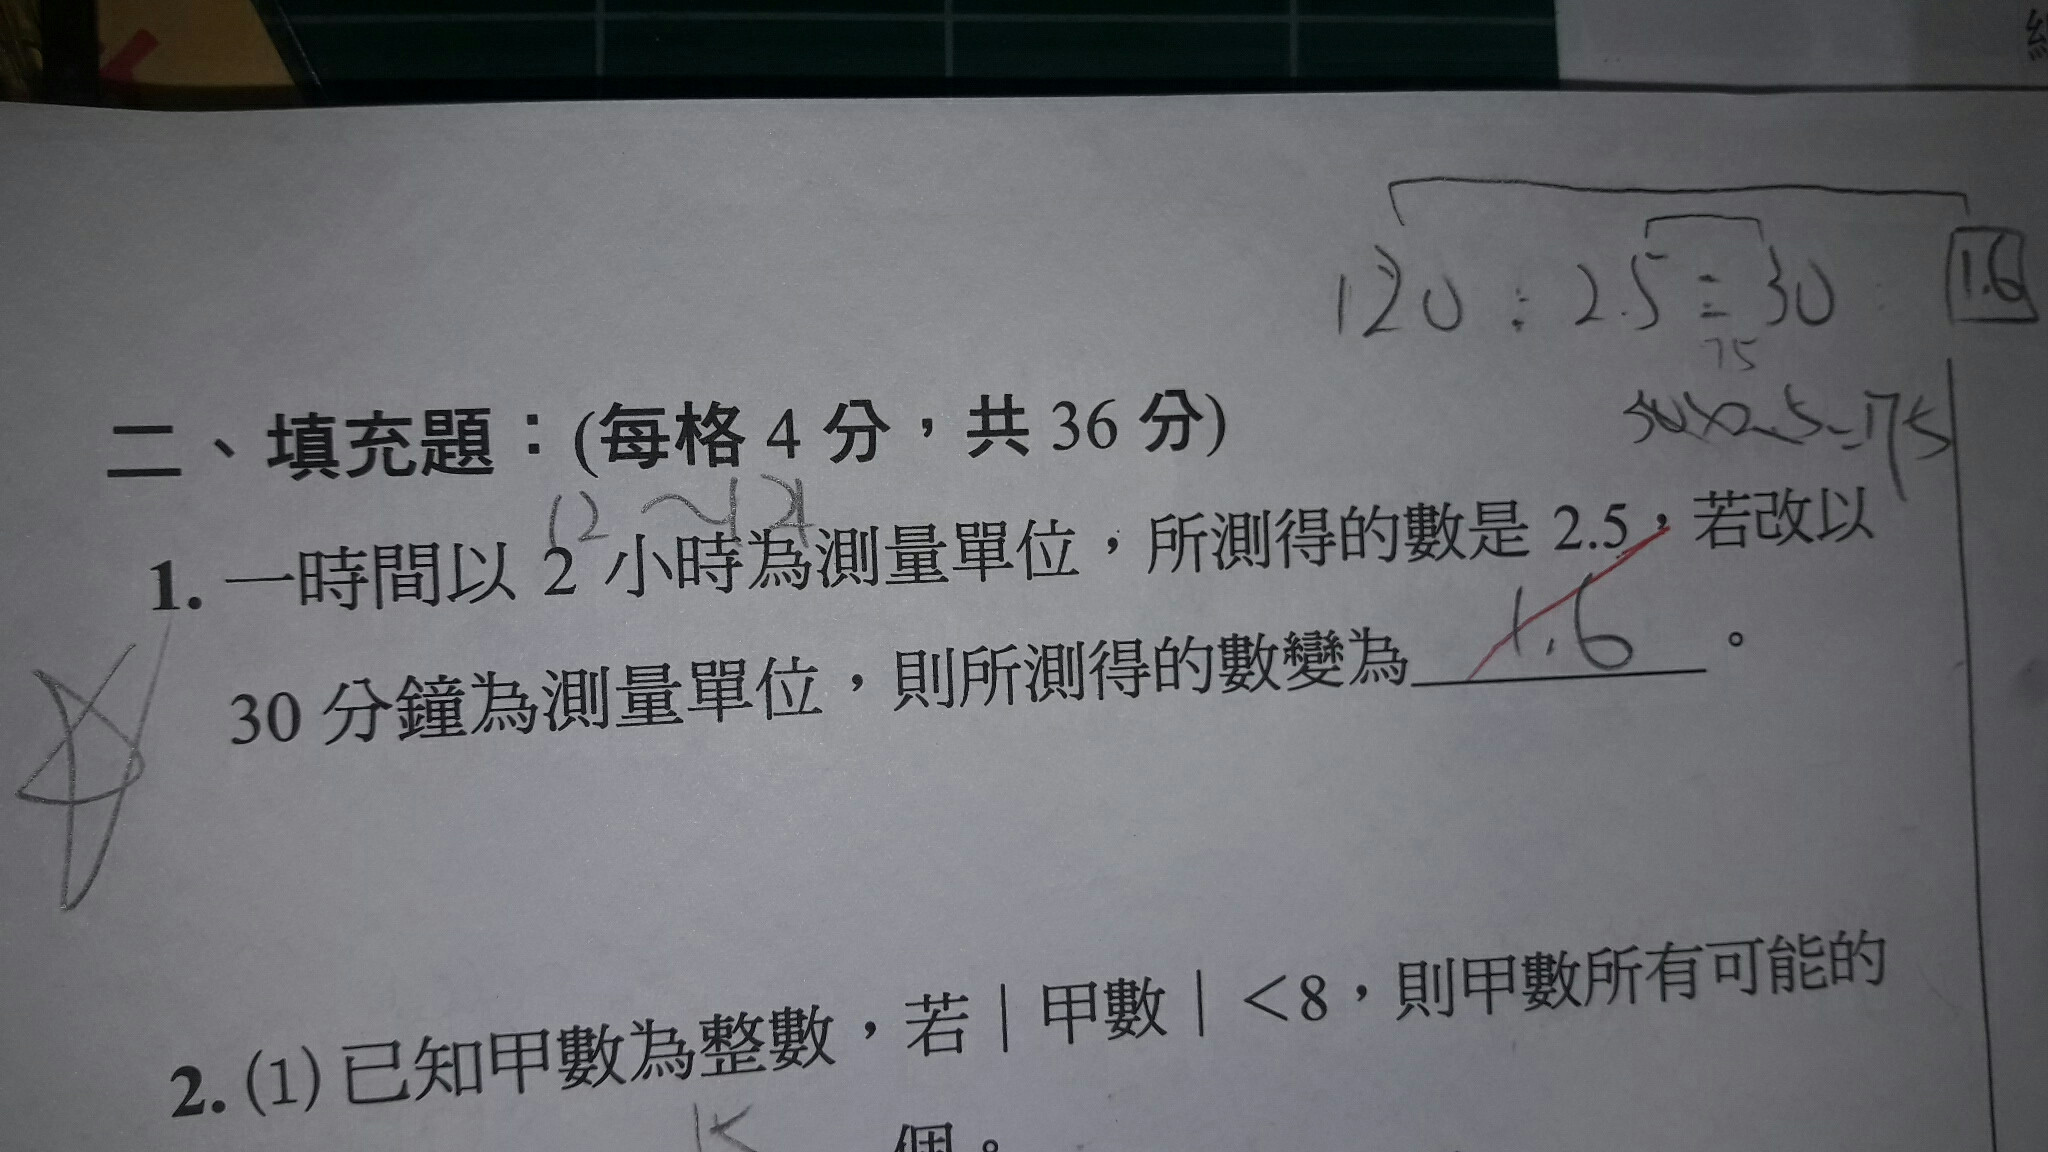 120 : 2.5 = 30 1.6
75
30×2.5=175
二、填充題：(每格 4 分，共 36 分)
1. 一時間以 2 小時為測量單位，所測得的數是 2.5，若改以
30 分鐘為測量單位，則所測得的數變為 1.6 。
2. (1) 已知甲數為整數，若｜甲數｜＜8，則甲數所有可能的
15 個。